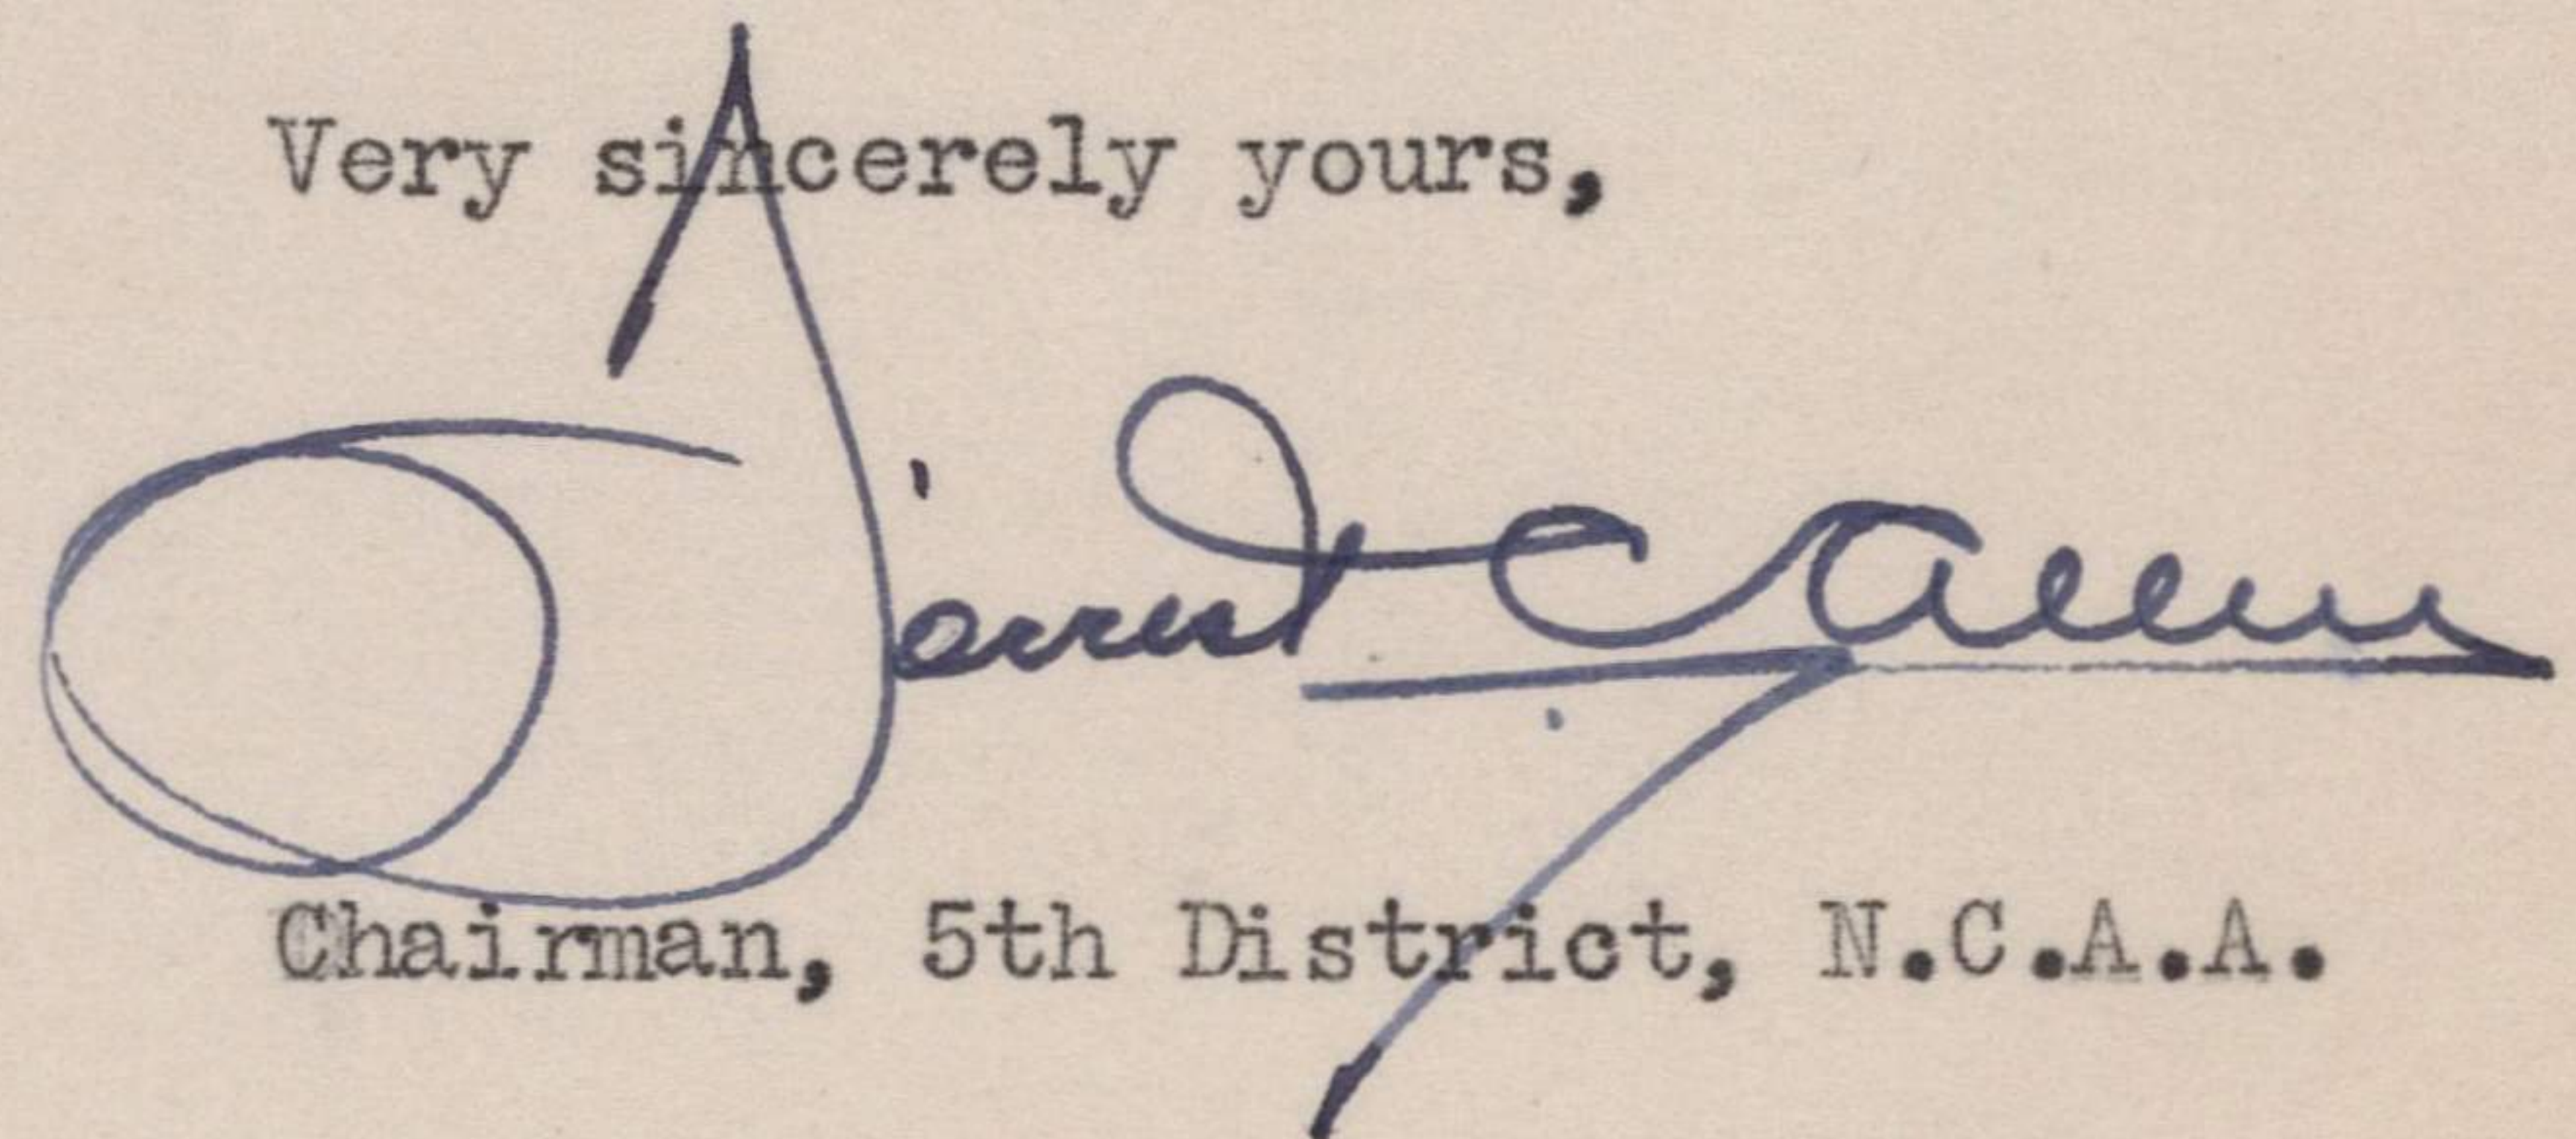 Very sincerely yours,
Forrest C Allen
Chairman, 5th District, N.C.A.A.